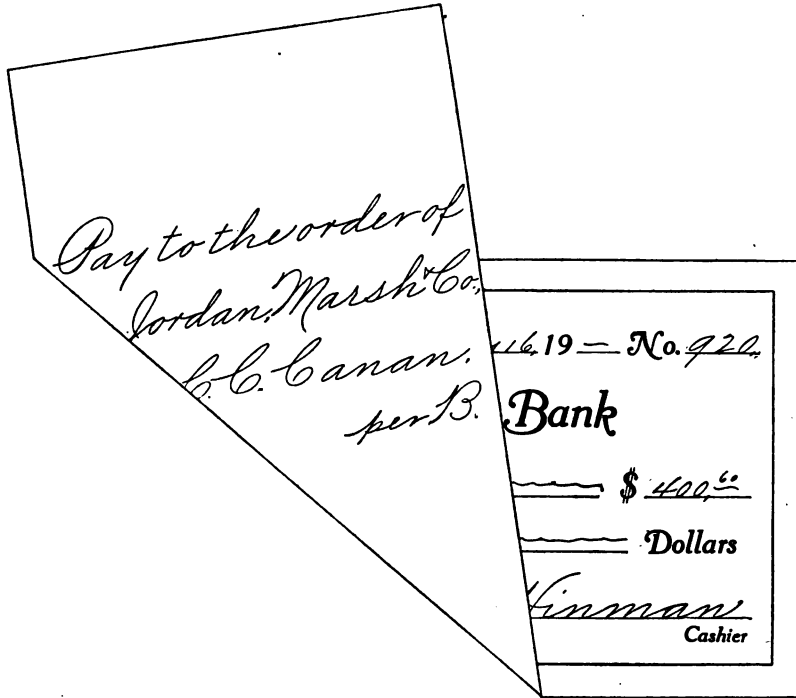 Pay to the order of
Jordan, Marsh & Co.,
C. C. Canan.
per B.
16, 19 — No. 920.
Bank
$ 400, 60
Dollars
Hinman
Cashier